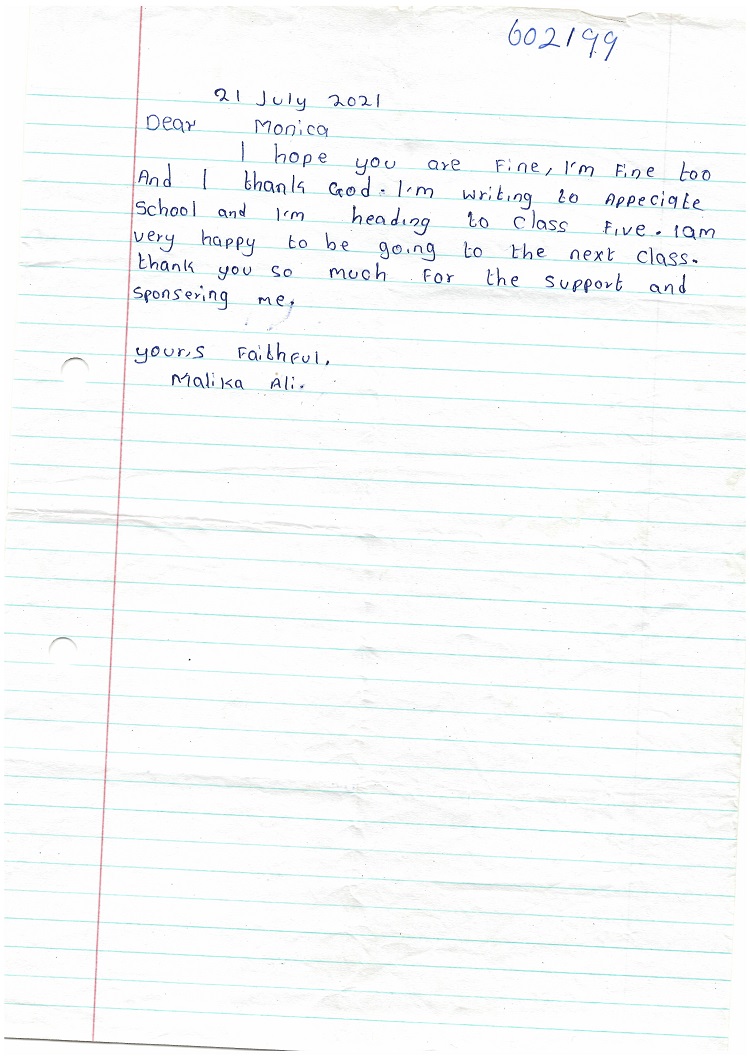 602199
21 July 2021
Dear Monica
I hope you are Fine, I'm Fine too
And I thank God. I'm writing to Appeciate
School and I'm heading to Class Five. Iam
very happy to be going to the next class.
thank you so much For the support and
Sponsering me,
your,s Faithful,
Malika Ali.